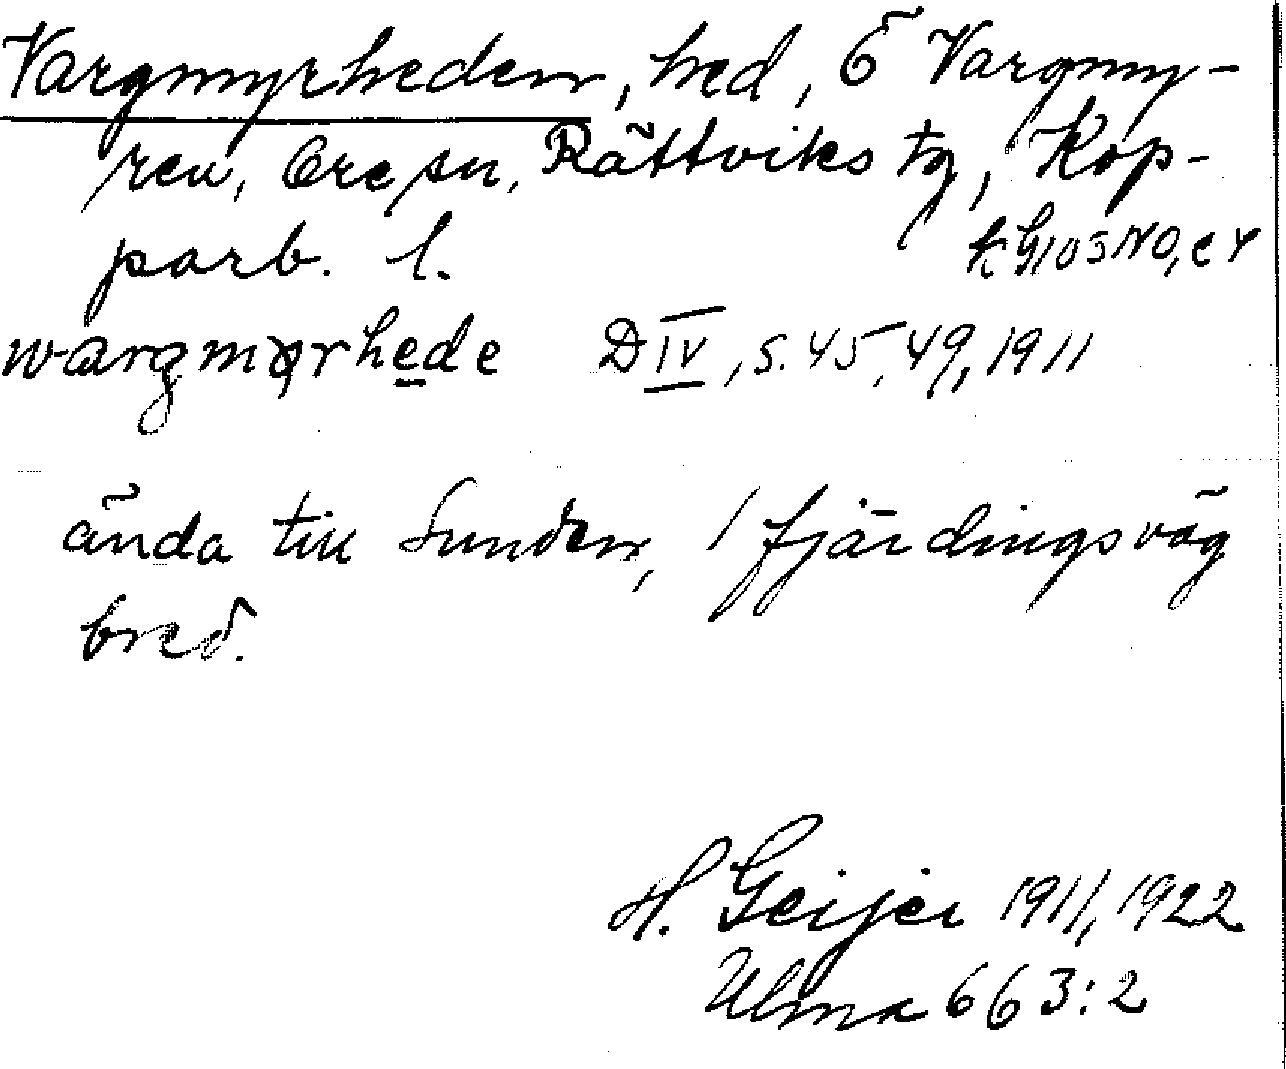 Vargmyrheden, hed, Ö Vargmy-
ren, Ore sn, Rättviks tg, Kop-
parb. l.
k G 105 NO, c 4
wargmyrhede D IV, s. 45, 49, 1911
ända till Sunden, 1 fjärdingsväg
bred.
H. Geijer 1911, 1922
Ulma 663:2